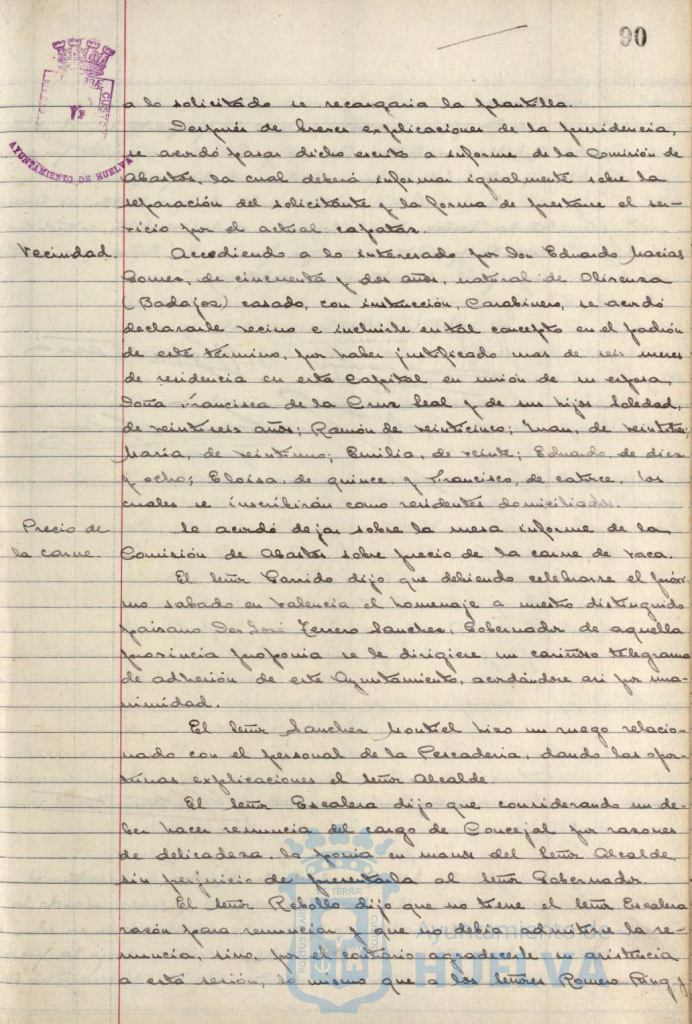 90
CUSTOS
AYUNTAMIENTO DE HUELVA
a lo solicitado se recargaria la plantilla.
Después de breves explicaciones de la presidencia,
se acordó pasar dicho escrito a informe de la Comisión de
Abastos, la cual deberá informar igualmente sobre la
separación del solicitante y la forma de prestarse el ser-
vicio por el actual capataz.
Vecindad. Accediendo a lo interesado por Don Eduardo Macias
Gomez, de cincuenta y dos años, natural de Olivenza
(Badajoz) casado, con instrucción, Carabinero, se acordó
declararle vecino e incluirle en tal concepto en el padrón
de este término, por haber justificado mas de seis meses
de residencia en esta Capital en unión de su esposa,
Doña Francisca de la Cruz Leal y de sus hijos Soledad,
de veintiseis años; Ramón de veinticinco; Juan, de veintitres;
María, de veintiuno; Emilia, de veinte; Eduardo, de diez
y ocho; Eloisa, de quince, y Francisco, de catorce, los
cuales se inscribirán como residentes domiciliados.
Precio de la carne. Se acordó dejar sobre la mesa informe de la
Comisión de Abastos sobre precio de la carne de vaca.
El señor Garrido dijo que debiendo celebrarse el próxi-
mo sabado en Valencia el homenaje a nuestro distinguido
paisano Don José Terrero Sanchez, Gobernador de aquella
provincia proponia se le dirigiese un cariñoso telegrama
de adhesión de este Ayuntamiento, acordándose asi por una-
nimidad.
El Señor Sanchez Montiel hizo un ruego relacio-
nado con el personal de la Pescaderia, dando las opor-
tunas explicaciones el señor Alcalde.
El Señor Escalera dijo que considerando un de-
ber hacer renuncia del cargo de Concejal por razones
de delicadeza, la ponia en manos del Señor Alcalde
sin perjuicio de presentarla al señor Gobernador.
El Señor Rebollo dijo que no tiene el señor Escalera
razón para renunciar y que no debia admitirse la re-
nuncia, sino, por el contrario agradecerle su asistencia
a esta sesión, lo mismo que a los Señores Romero Ring y
Ayuntamiento de
HUELVA